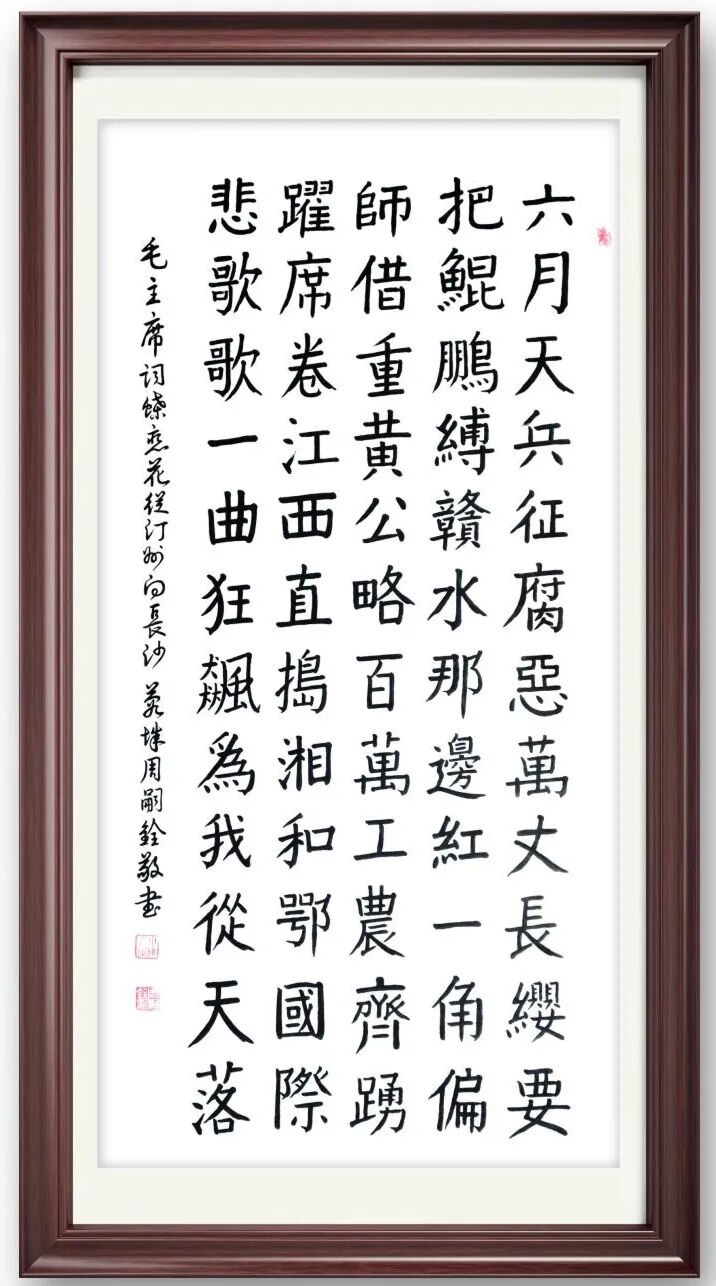 六月天兵征腐惡萬丈長纓要
把鯤鵬縛贛水那邊紅一角偏
師借重黄公略百萬工農齊踴
躍席卷江西直搗湘和鄂國際
悲歌歌一曲狂飆爲我從天落
毛主席词蝶恋花從汀州向長沙 周嗣銓敬書